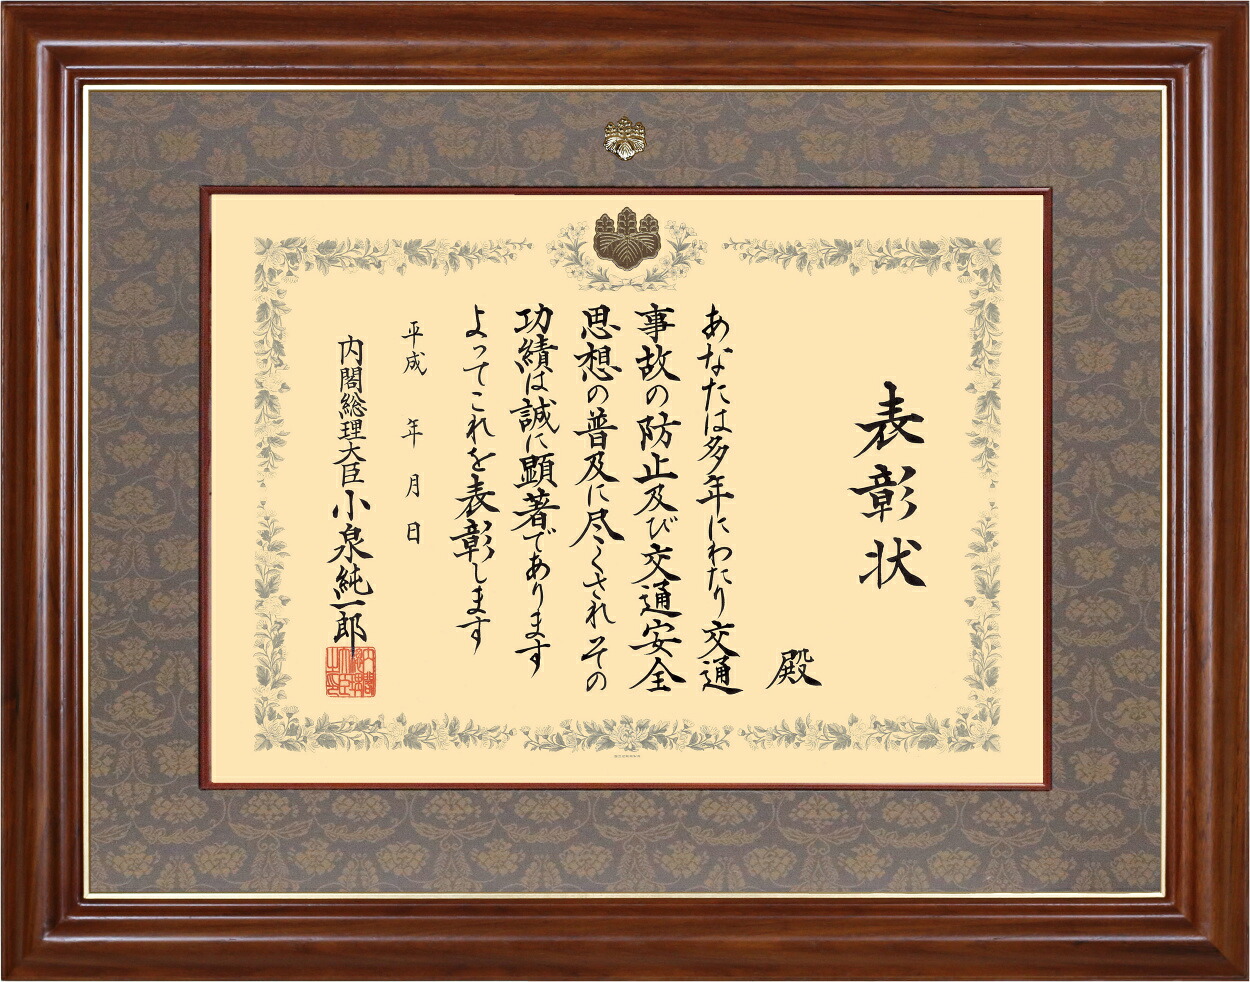 表彰状
殿
あなたは多年にわたり交通
事故の防止及び交通安全
思想の普及に尽くされその
功績は誠に顕著であります
よってこれを表彰します
平成　年　月　日
内閣総理大臣 小泉純一郎